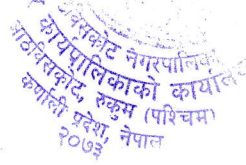 नगरपालिका
कार्यपालिकाको कार्यालय
आठविसकोट, रुकुम (पश्चिम)
कर्णाली प्रदेश, नेपाल
२०७३